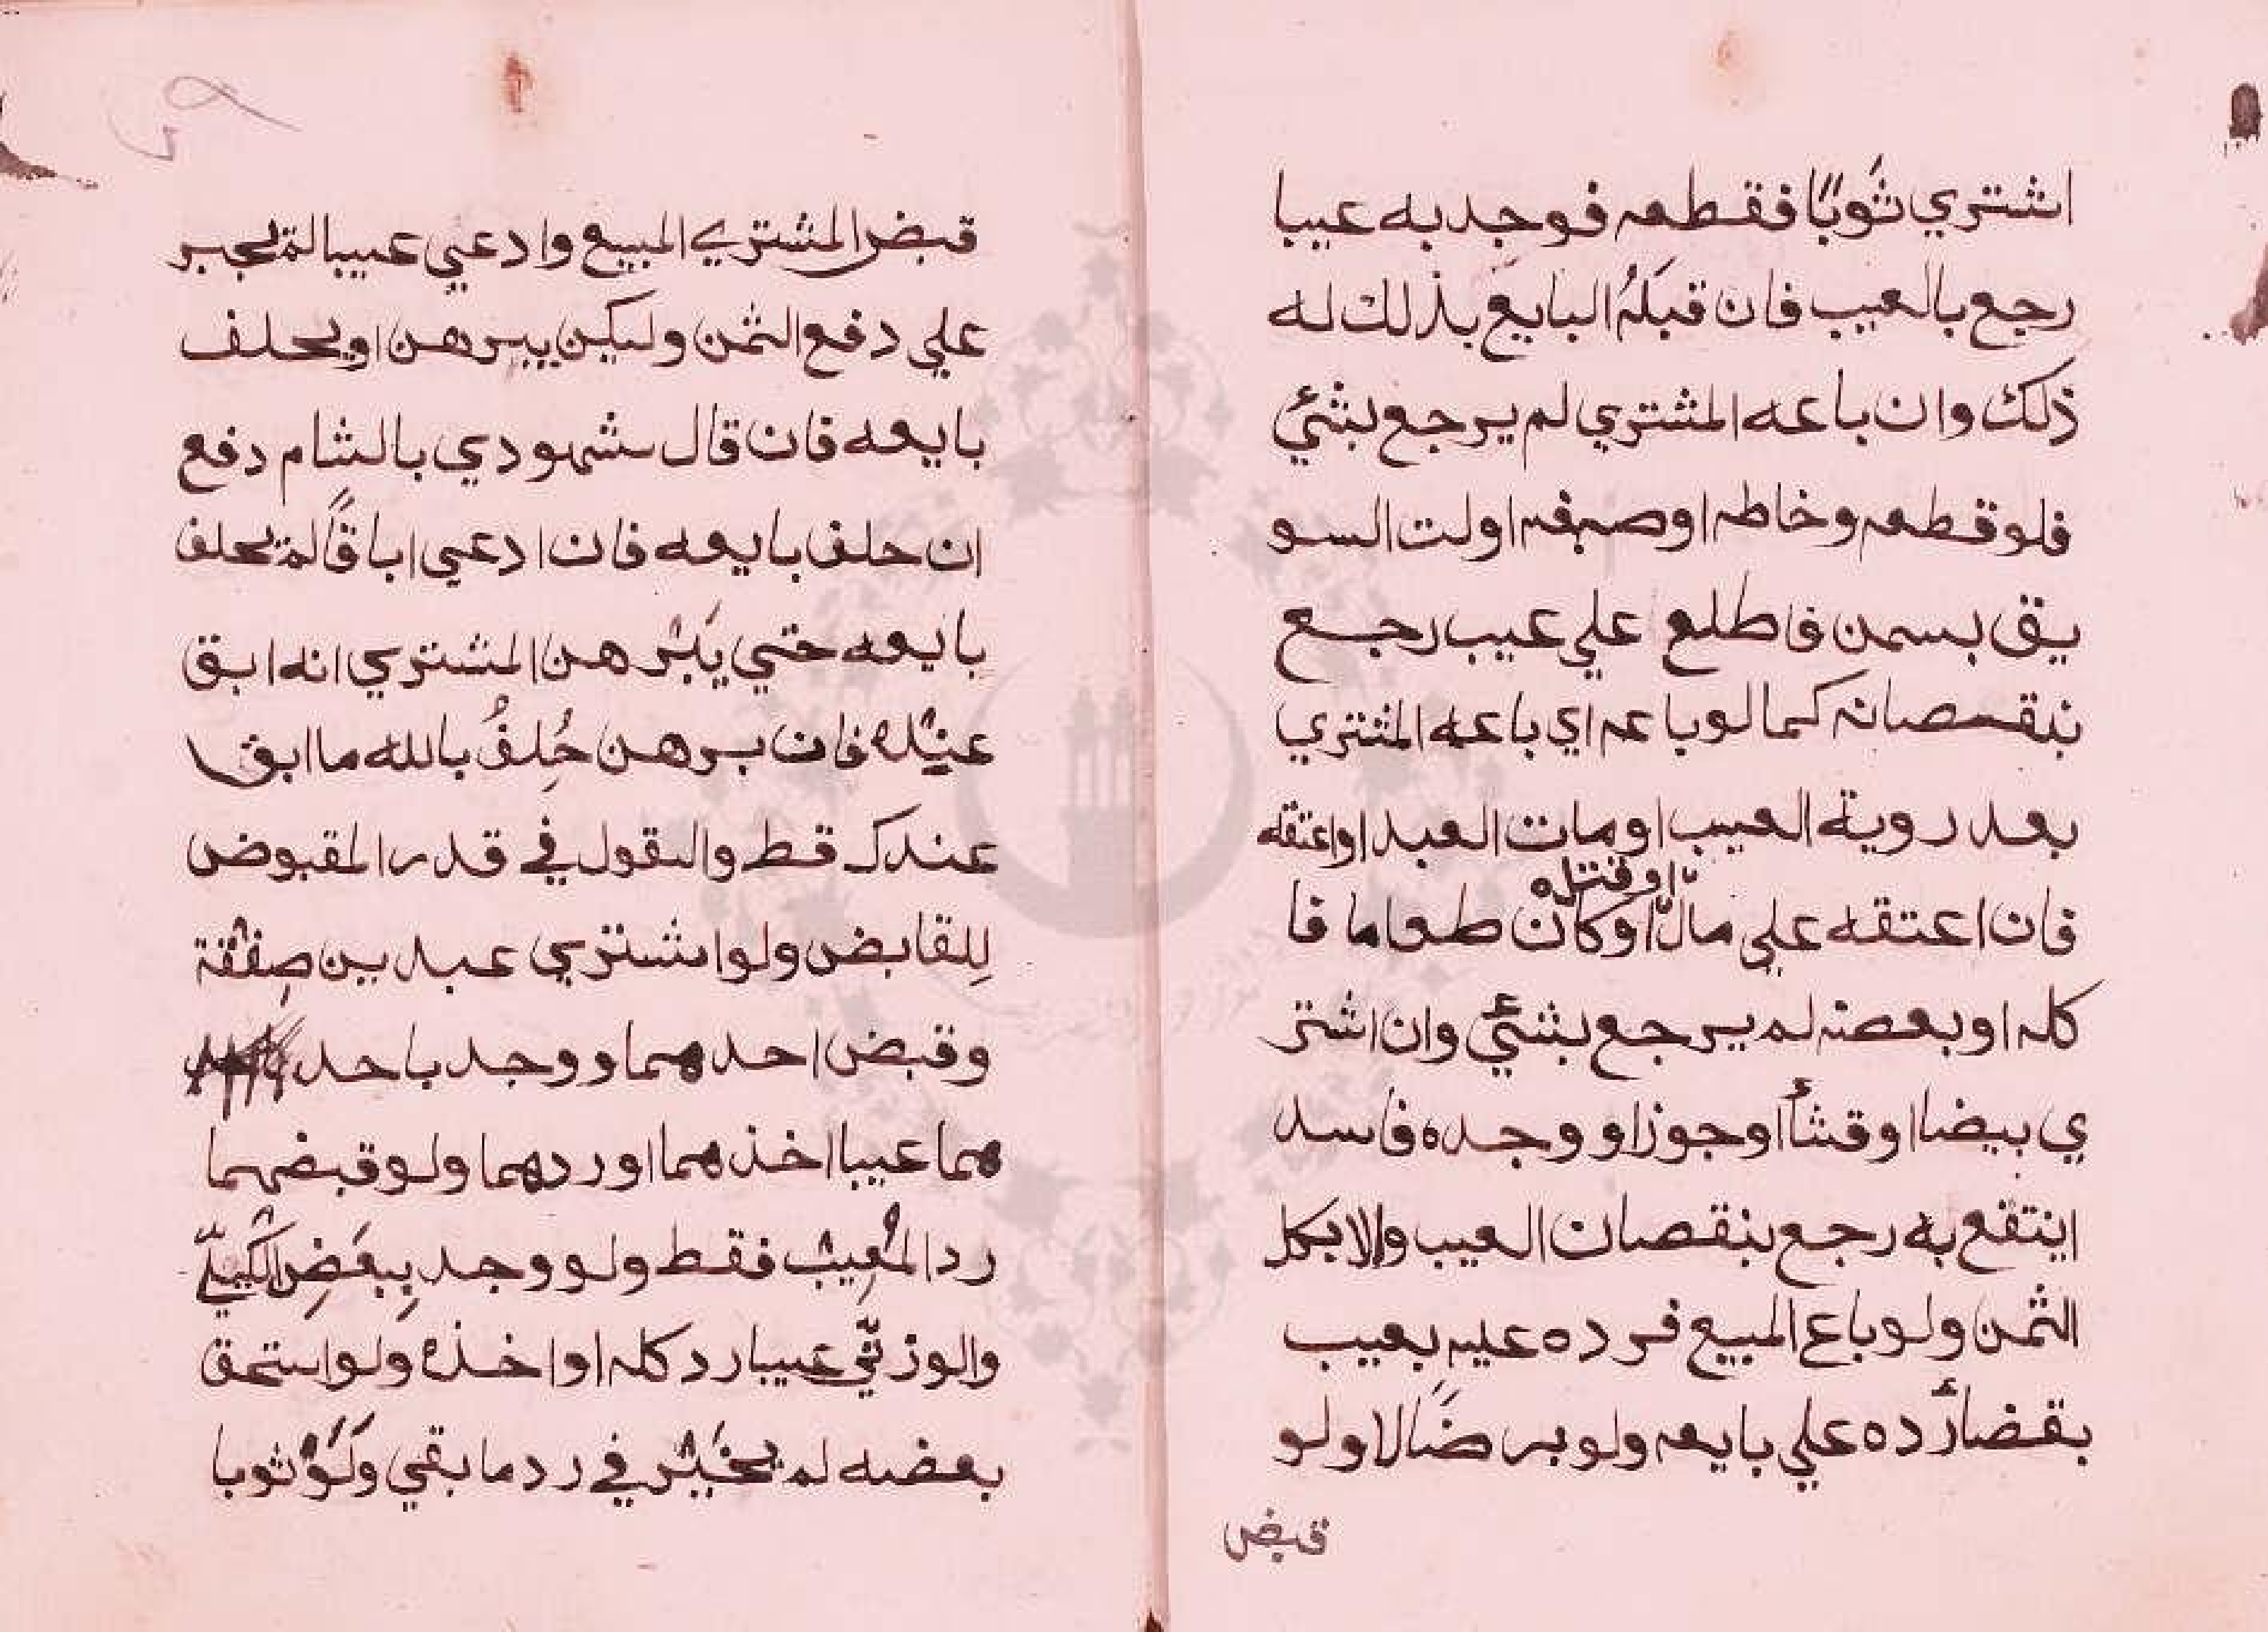 اشتري ثَوبًا فقطعه فوجد به عيبا
رجع بالعيب فان قبَلهُ البايع بذلك له
ذلك وان باعه المشتري لم يرجع بشئي
فلو قطعه وخاطه او صبغه اولت السو
يق بسمن فاطلع علي عيب رجع
بنقصانه كما لو باعه اي باعه المشتري
بعد روية العيب او مات العبد او اعتقه
فان اعتقه علي مال او قتله او كان طعاما فا
كله او بعضه لم يرجع بشئي وان اشتر
ي بيضا او قثأ او جوزا ووجده فاسد
اينتفع به رجع بنقصان العيب والا بكل
الثمن ولو باع المبيع فرده عليه بعيب
بقضأ رده علي بايعه ولو برضًا لا ولو
قبض
قبض المشتري المبيع وادعي عيبا لم يجبر
علي دفع الثمن ولكن يبرهن او يحلف
بايعه فان قال شهودي بالشام دفع
ان حلف بايعه فان ادعي اباقًا لم يحلف
بايعه حتي يَبرهن المشتري انه ابق
عنده فان برهن حُلِفُ بالله ما ابق
عندك قط والقول في قدر المقبوض
لِلقابض ولو اشتري عبدين صِفقة
وقبض احدهما ووجد باحد
هما عيبا اخذهما او ردهما ولو قبضهما
رد المُعِيب فقط ولو وجد بِبعَضِ الكَيليّ
والوزنّي عيبا رد كله او اخذه ولو استحق
بعضه لم يخَير في رد ما بقي ولَوْ ثوبا